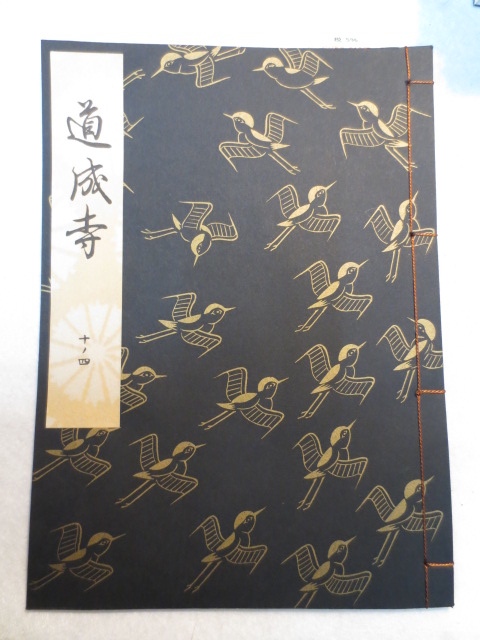 道成寺
十ノ四